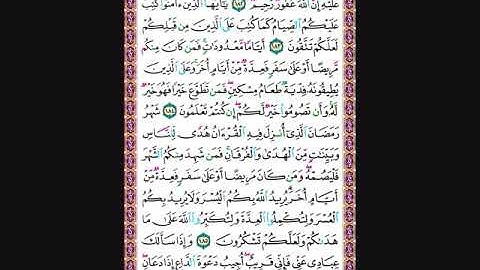 عَلَيْهِ إِنَّ اللَّهَ غَفُورٌ رَّحِيمٌ ١٨٢ يَا أَيُّهَا الَّذِينَ آمَنُوا كُتِبَ
عَلَيْكُمُ الصِّيَامُ كَمَا كُتِبَ عَلَى الَّذِينَ مِن قَبْلِكُمْ
لَعَلَّكُمْ تَتَّقُونَ ١٨٣ أَيَّامًا مَّعْدُودَاتٍ فَمَن كَانَ مِنكُم
مَّرِيضًا أَوْ عَلَى سَفَرٍ فَعِدَّةٌ مِّنْ أَيَّامٍ أُخَرَ وَعَلَى الَّذِينَ
يُطِيقُونَهُ فِدْيَةٌ طَعَامُ مِسْكِينٍ فَمَن تَطَوَّعَ خَيْرًا فَهُوَ خَيْرٌ
لَّهُ وَأَن تَصُومُوا خَيْرٌ لَّكُمْ إِن كُنتُمْ تَعْلَمُونَ ١٨٤ شَهْرُ
رَمَضَانَ الَّذِي أُنزِلَ فِيهِ الْقُرْءَانُ هُدًى لِّلنَّاسِ
وَبَيِّنَاتٍ مِّنَ الْهُدَى وَالْفُرْقَانِ فَمَن شَهِدَ مِنكُمُ الشَّهْرَ
فَلْيَصُمْهُ وَمَن كَانَ مَرِيضًا أَوْ عَلَى سَفَرٍ فَعِدَّةٌ مِّنْ
أَيَّامٍ أُخَرَ يُرِيدُ اللَّهُ بِكُمُ الْيُسْرَ وَلَا يُرِيدُ بِكُمُ
الْعُسْرَ وَلِتُكْمِلُوا الْعِدَّةَ وَلِتُكَبِّرُوا اللَّهَ عَلَى مَا
هَدَاكُمْ وَلَعَلَّكُمْ تَشْكُرُونَ ١٨٥ وَإِذَا سَأَلَكَ
عِبَادِي عَنِّي فَإِنِّي قَرِيبٌ أُجِيبُ دَعْوَةَ الدَّاعِ إِذَا دَعَانِ